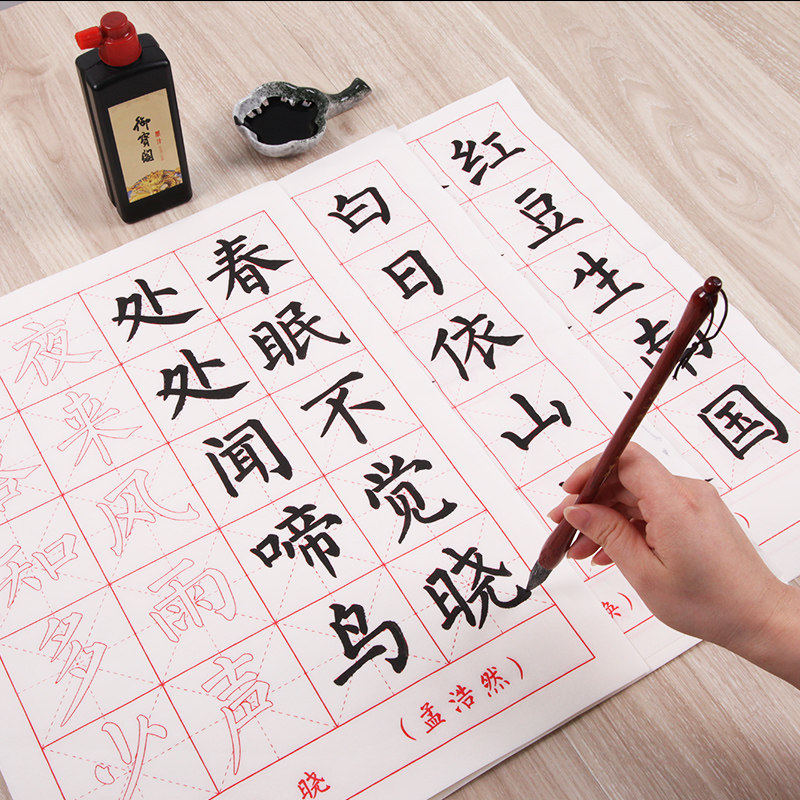 御寶閣
墨汁
红豆生南国
白日依山
春眠不觉晓
处处闻啼鸟
夜来风雨声
知多少
晓
(孟浩然)